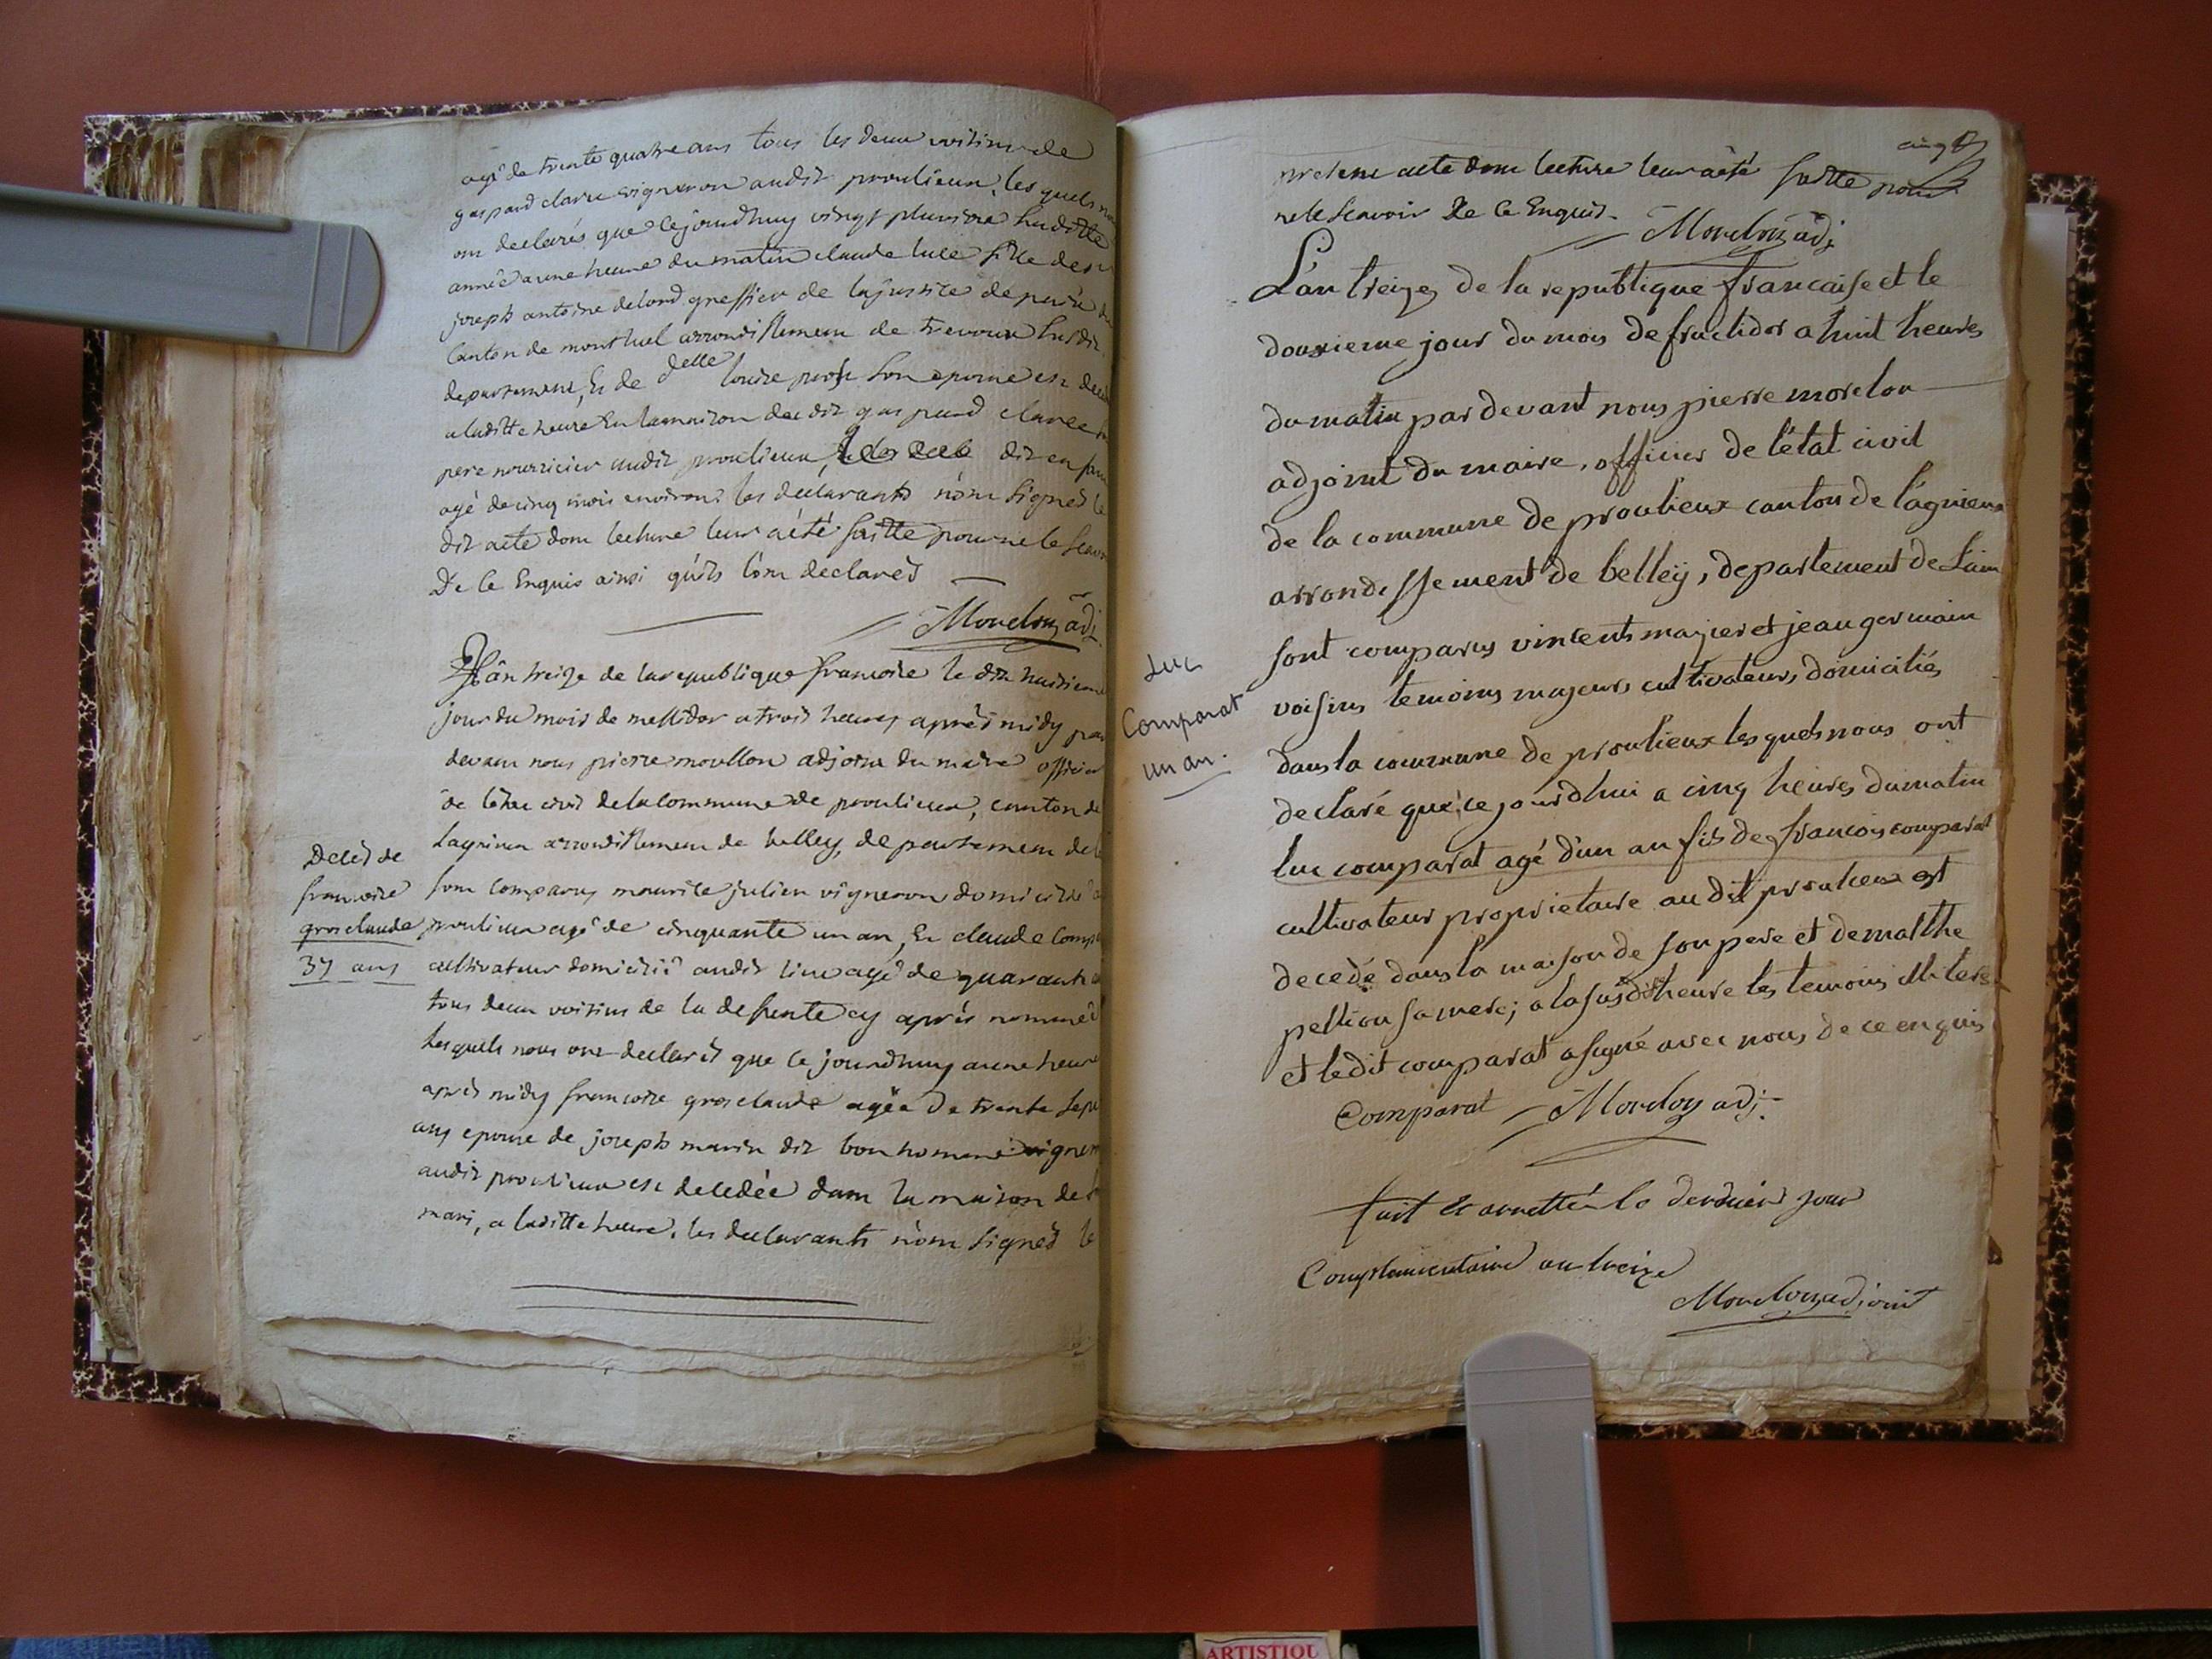 agé de trente quatre ans tous les deux voisins de
gaspard claire vigneron audit proulieux, les quels
ont declarés que cejourdhuy vingt pluviose susditte
année a une heure du matin claude luce fille de
joseph antoine delord greffier de la justice de paix
Canton de montluel arrondissement de trevoux susdit
departement, Et de delle louise son epouse est
a laditte heure En la maison dudit gaspard claire
pere nourricier audit proulieux, dit enfant
agé de cinq mois environ. les declarants n'ont signés le
dit acte dont lecture leur a été faitte pour ne le scavoir
De Ce Enquis ainsi qu'ils l'ont declarés
Morelon adj
L'an treize de la republique francoise le dix huitieme
jour du mois de messidor a trois heures après midy par
devant nous pierre morellon adjoint du maire officier
de l'etat civil de la commune de proulieux, canton de
Lagnieu arrondissement de belley, departement de
sont comparus maurice julien vigneron domicilié
proulieux agé de cinquante un an, Et claude Comp
cultivateur domicilié audit lieu agé de quarante
tous deux voisins de la defunte cy après nommée
Lesquels nous ont declarés que ce jourdhuy a une heure
après midy francoise grosclaude agée de trente sept
ans epouse de joseph marin dit bon homme vigneron
audit proulieux est decedée dans la maison de
mari, a laditte heure. les declarants n'ont signés le
Decès de
francoise
grosclaude
37 ans
cinq
present acte dont lecture leur a été faitte pour
ne le scavoir De Ce Enquis.
Morelon adj
L'an treize de la republique francaise et le
douxieme jour du mois de fructidor a huit heures
du matin par devant nous pierre morelon
adjoint du maire, officier de l'état civil
de la commune de proulieux canton de lagnieux
arrondissement de belleÿ, departement de Lain
sont comparus vincent magier et jean germain
voisins temoins majeurs cultivateurs, domiciliés
dans la commune de proulieux les quels nous ont
declaré que ce jourd'hui a cinq heures du matin
luc comparat agé d'un an fils de francois comparat
cultivateur proprietaire au dit proulieux est
decedé dans la maison de son pere et de marthe
pellion sa mere; a la susdite heure les temoins illiteres
et ledit comparat a signé avec nous, de ce enquis
Comparat Morelon adj.
Luc
Comparat
un an.
fait et arretté le dernier jour
Complementaire an treize
Morelon adjoint
ARTISTIQU